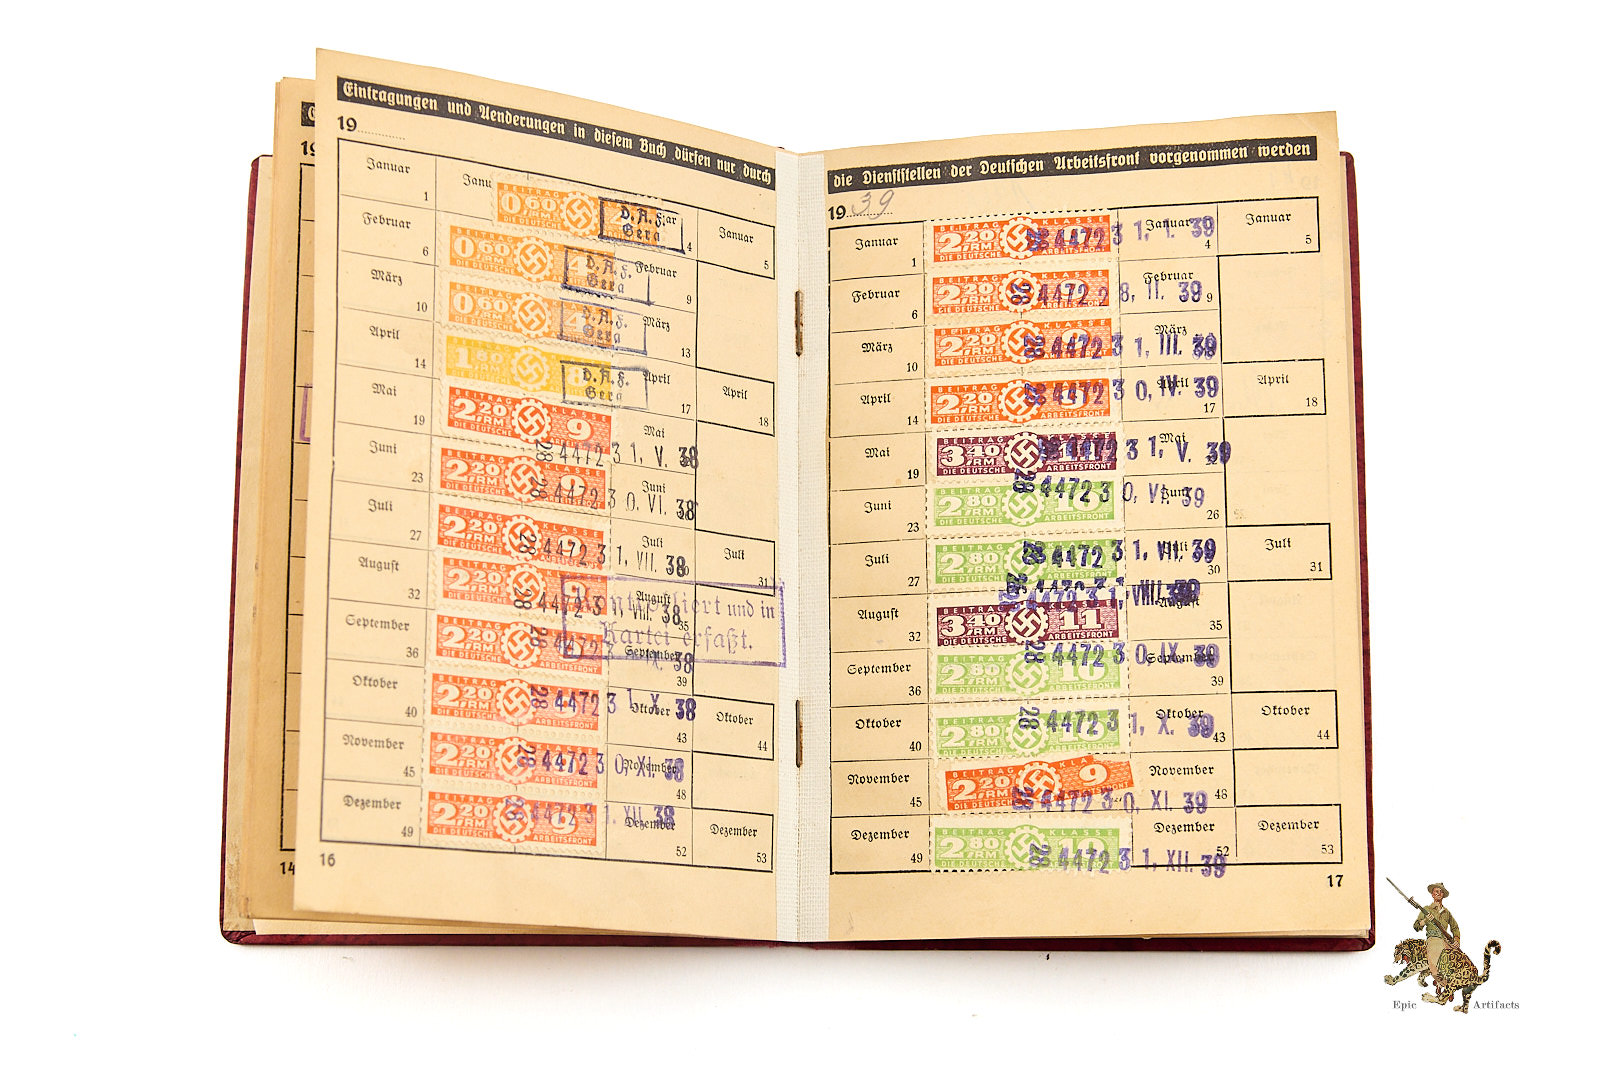 Eintragungen und Aenderungen in diesem Buch dürfen nur durch
19
Januar 1
Februar 6
März 10
April 14
Mai 19
Juni 23
Juli 27
August 32
September 36
Oktober 40
November 45
Dezember 49
BEITRAG
060 RM
DIE DEUTSCHE
D.A.F.
Gera
4
060 RM
D.A.F.
Gera
Februar 9
060 RM
D.A.F.
Gera
März 13
160
D.A.F.
Gera
April 17
2 20 RM KLASSE 9
Mai
28 4472 31, V. 38
2 20 RM 9
Juni
28 4472 30, VI. 38
2 20 RM
Juli
28 4472 31, VII. 38
2 20 RM
August 35
28 4472 31, VIII. 38
2 20 RM
September 39
28 4472 30, IX. 38
2 20 RM
Oktober 43
28 4472 31, X. 38
2 20 RM
November 48
28 4472 30, XI. 38
2 20 RM 9
Dezember 52
28 4472 31, XII. 38
Kontrolliert und in
Kartei erfaßt.
Januar 5
April 18
Juli 31
Oktober 44
Dezember 53
16
14
die Dienststellen der Deutschen Arbeitsfront vorgenommen werden
1939
Januar 1
Februar 6
März 10
April 14
Mai 19
Juni 23
Juli 27
August 32
September 36
Oktober 40
November 45
Dezember 49
BEITRAG KLASSE
2 20 RM
DIE DEUTSCHE
Januar 4
28 4472 31, I. 39
2 20 RM
Februar 9
28 4472 28, II. 39
2 20 RM 9
März
28 4472 31, III. 39
2 20 RM
April 17
28 4472 30, IV. 39
3 40 RM
DIE DEUTSCHE ARBEITSFRONT
Mai
28 4472 31, V. 39
2 80 RM 10
DIE DEUTSCHE ARBEITSFRONT
Juni 26
28 4472 30, VI. 39
2 80 RM
Juli 30
28 4472 31, VII. 39
BEITRAG KLASSE
3 40 RM 11
DIE DEUTSCHE ARBEITSFRONT
August 35
28 4472 31, VIII. 39
2 80 RM 10
September 39
28 4472 30, IX. 39
2 80 RM 10
Oktober 43
28 4472 31, X. 39
BEITRAG KLA
2 20 RM 9
November 48
28 4472 30, XI. 39
BEITRAG KLASSE
2 80 RM 10
Dezember 52
28 4472 31, XII. 39
Januar 5
April 18
Juli 31
Oktober 44
Dezember 53
17
Epic Artifacts